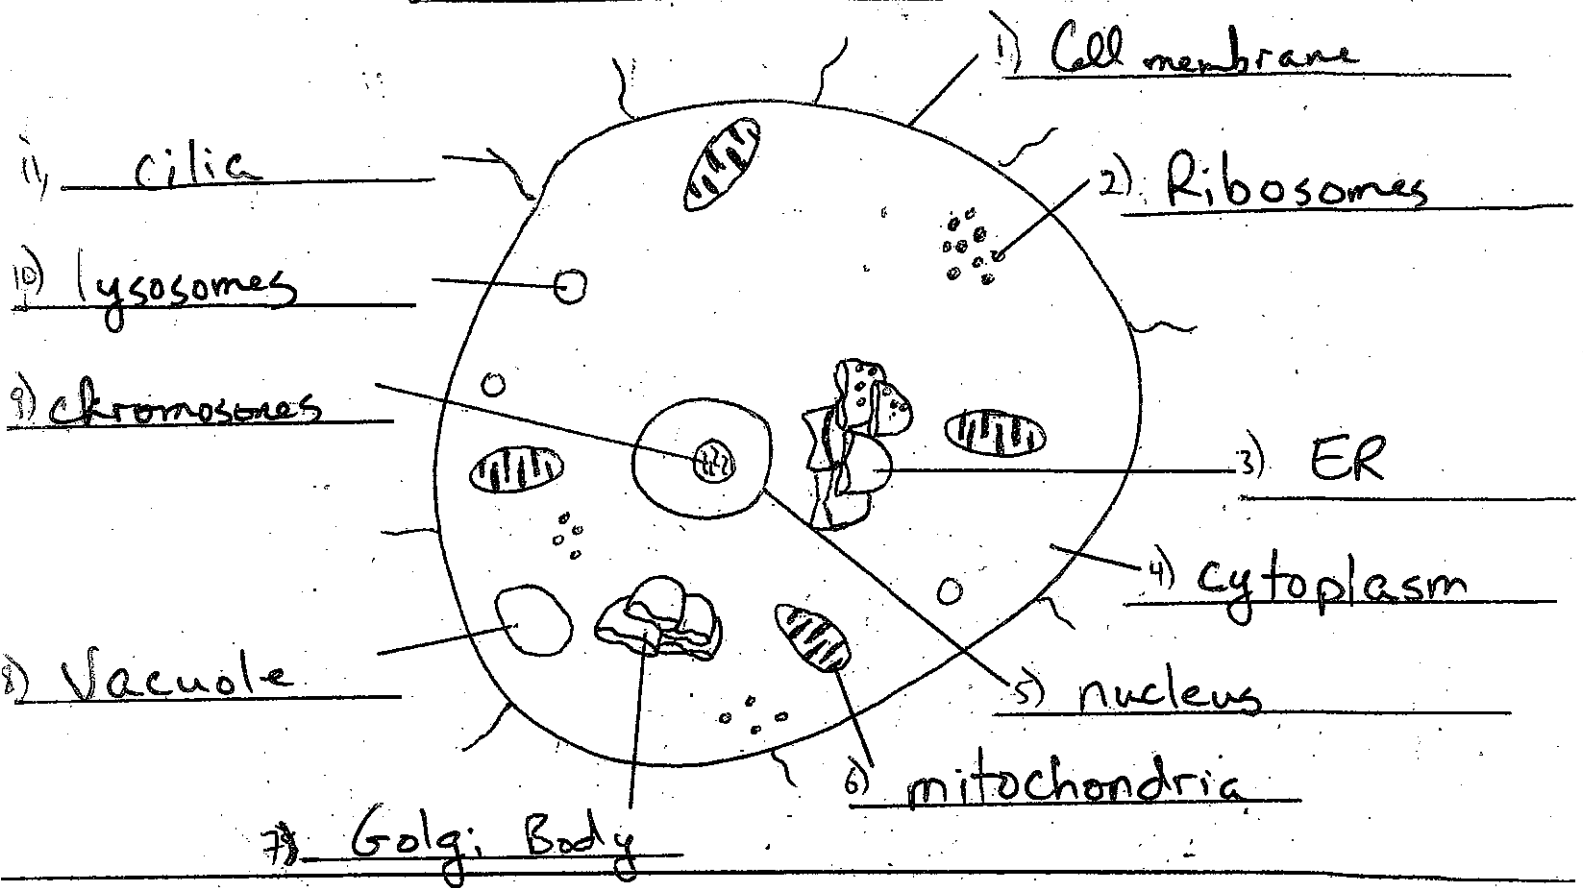 1) Cell membrane
2) Ribosomes
3) ER
4) cytoplasm
5) nucleus
6) mitochondria
7) Golgi Body
8) Vacuole
9) chromosomes
10) lysosomes
11) cilia